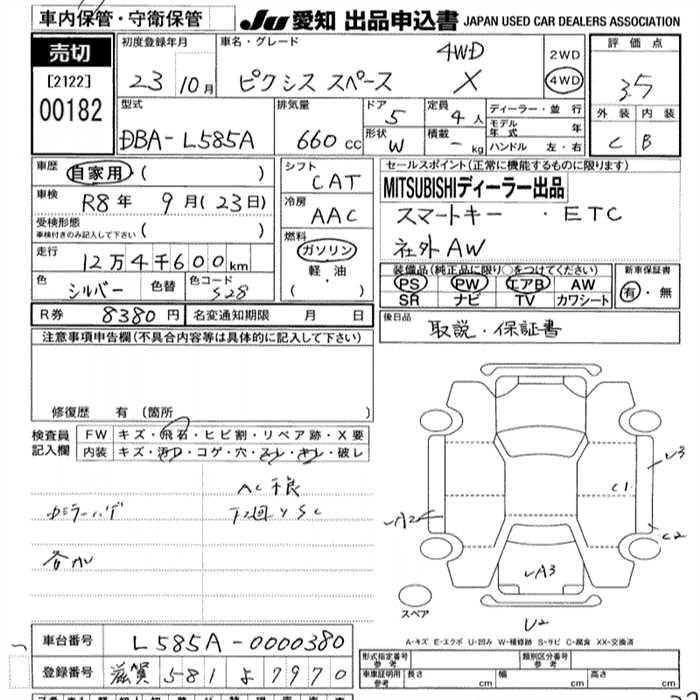 車内保管・守衛保管
JU 愛知 出品申込書 JAPAN USED CAR DEALERS ASSOCIATION
売切
[2122]
00182
初度登録年月
23 10月
車名・グレード
4WD
ピクシス スペース X
2WD
4WD
評価点
3.5
外装 内装
C B
型式
DBA-L585A
排気量
660 cc
ドア
5
形状
W
定員
4人
積載
- kg
ディーラー・並行
モデル年式 年
ハンドル 左・右
車歴
自家用 ( )
車検
R8年 9月(23日)
受検形態
車検付きのみ記入して下さい ( )
走行
12万4千600km
色
シルバー
色替
色コード
S28
シフト
CAT
冷房
AAC
燃料
ガソリン
軽・油
( )
セールスポイント(正常に機能するものに限ります)
MITSUBISHIディーラー出品
スマートキー ・ETC
社外AW
装備品(純正品に限り○をつけてください)
PS PW エアB AW
SR ナビ TV カワシート
新車保証書
有・無
R券 8380円
名変通知期限 月 日
後日品
取説・保証書
注意事項申告欄(不具合内容等は具体的に記入して下さい)
修復歴 有(箇所 )
検査員記入欄
FW キズ・飛石・ヒビ割・リペア跡・X要
内装 キズ・汚れ・コゲ・穴・スレ・キレ・破レ
AC不良
下廻りSC
A2
U3
C1
C2
A3
U2
スペア
A-キズ E-エクボ U-凹み W-補修跡 S-サビ C-腐食 XX-交換済
車台番号 L585A-0000380
登録番号 滋賀 581 よ 7970
形式指定番号 参考
類別区分番号 参考
車庫証明用 参考
長さ cm
幅 cm
高さ cm